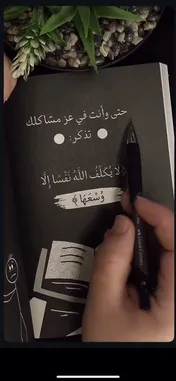 حتى وأنت في عز مشاكلك
تذكر:
لَا يُكَلِّفُ اللَّهُ نَفْسًا إِلَّا
وُسْعَهَا ﴾